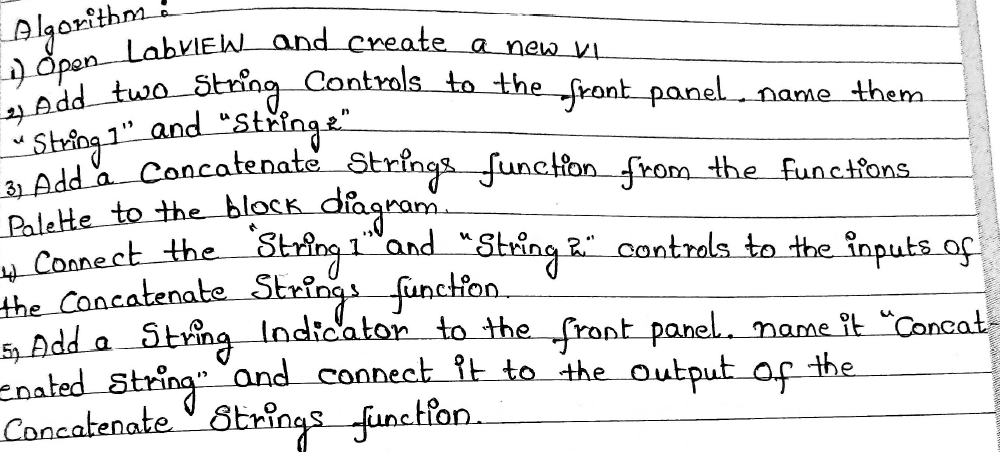 Algorithm :
1) Open LabVIEW and create a new VI
2) Add two String Controls to the front panel. name them
"String 1" and "String 2"
3) Add a Concatenate Strings function from the functions
Palette to the block diagram.
4) Connect the "String 1" and "String 2" controls to the inputs of
the Concatenate Strings function.
5) Add a String Indicator to the front panel. name it "Concat
enated String" and connect it to the output of the
Concatenate Strings function.